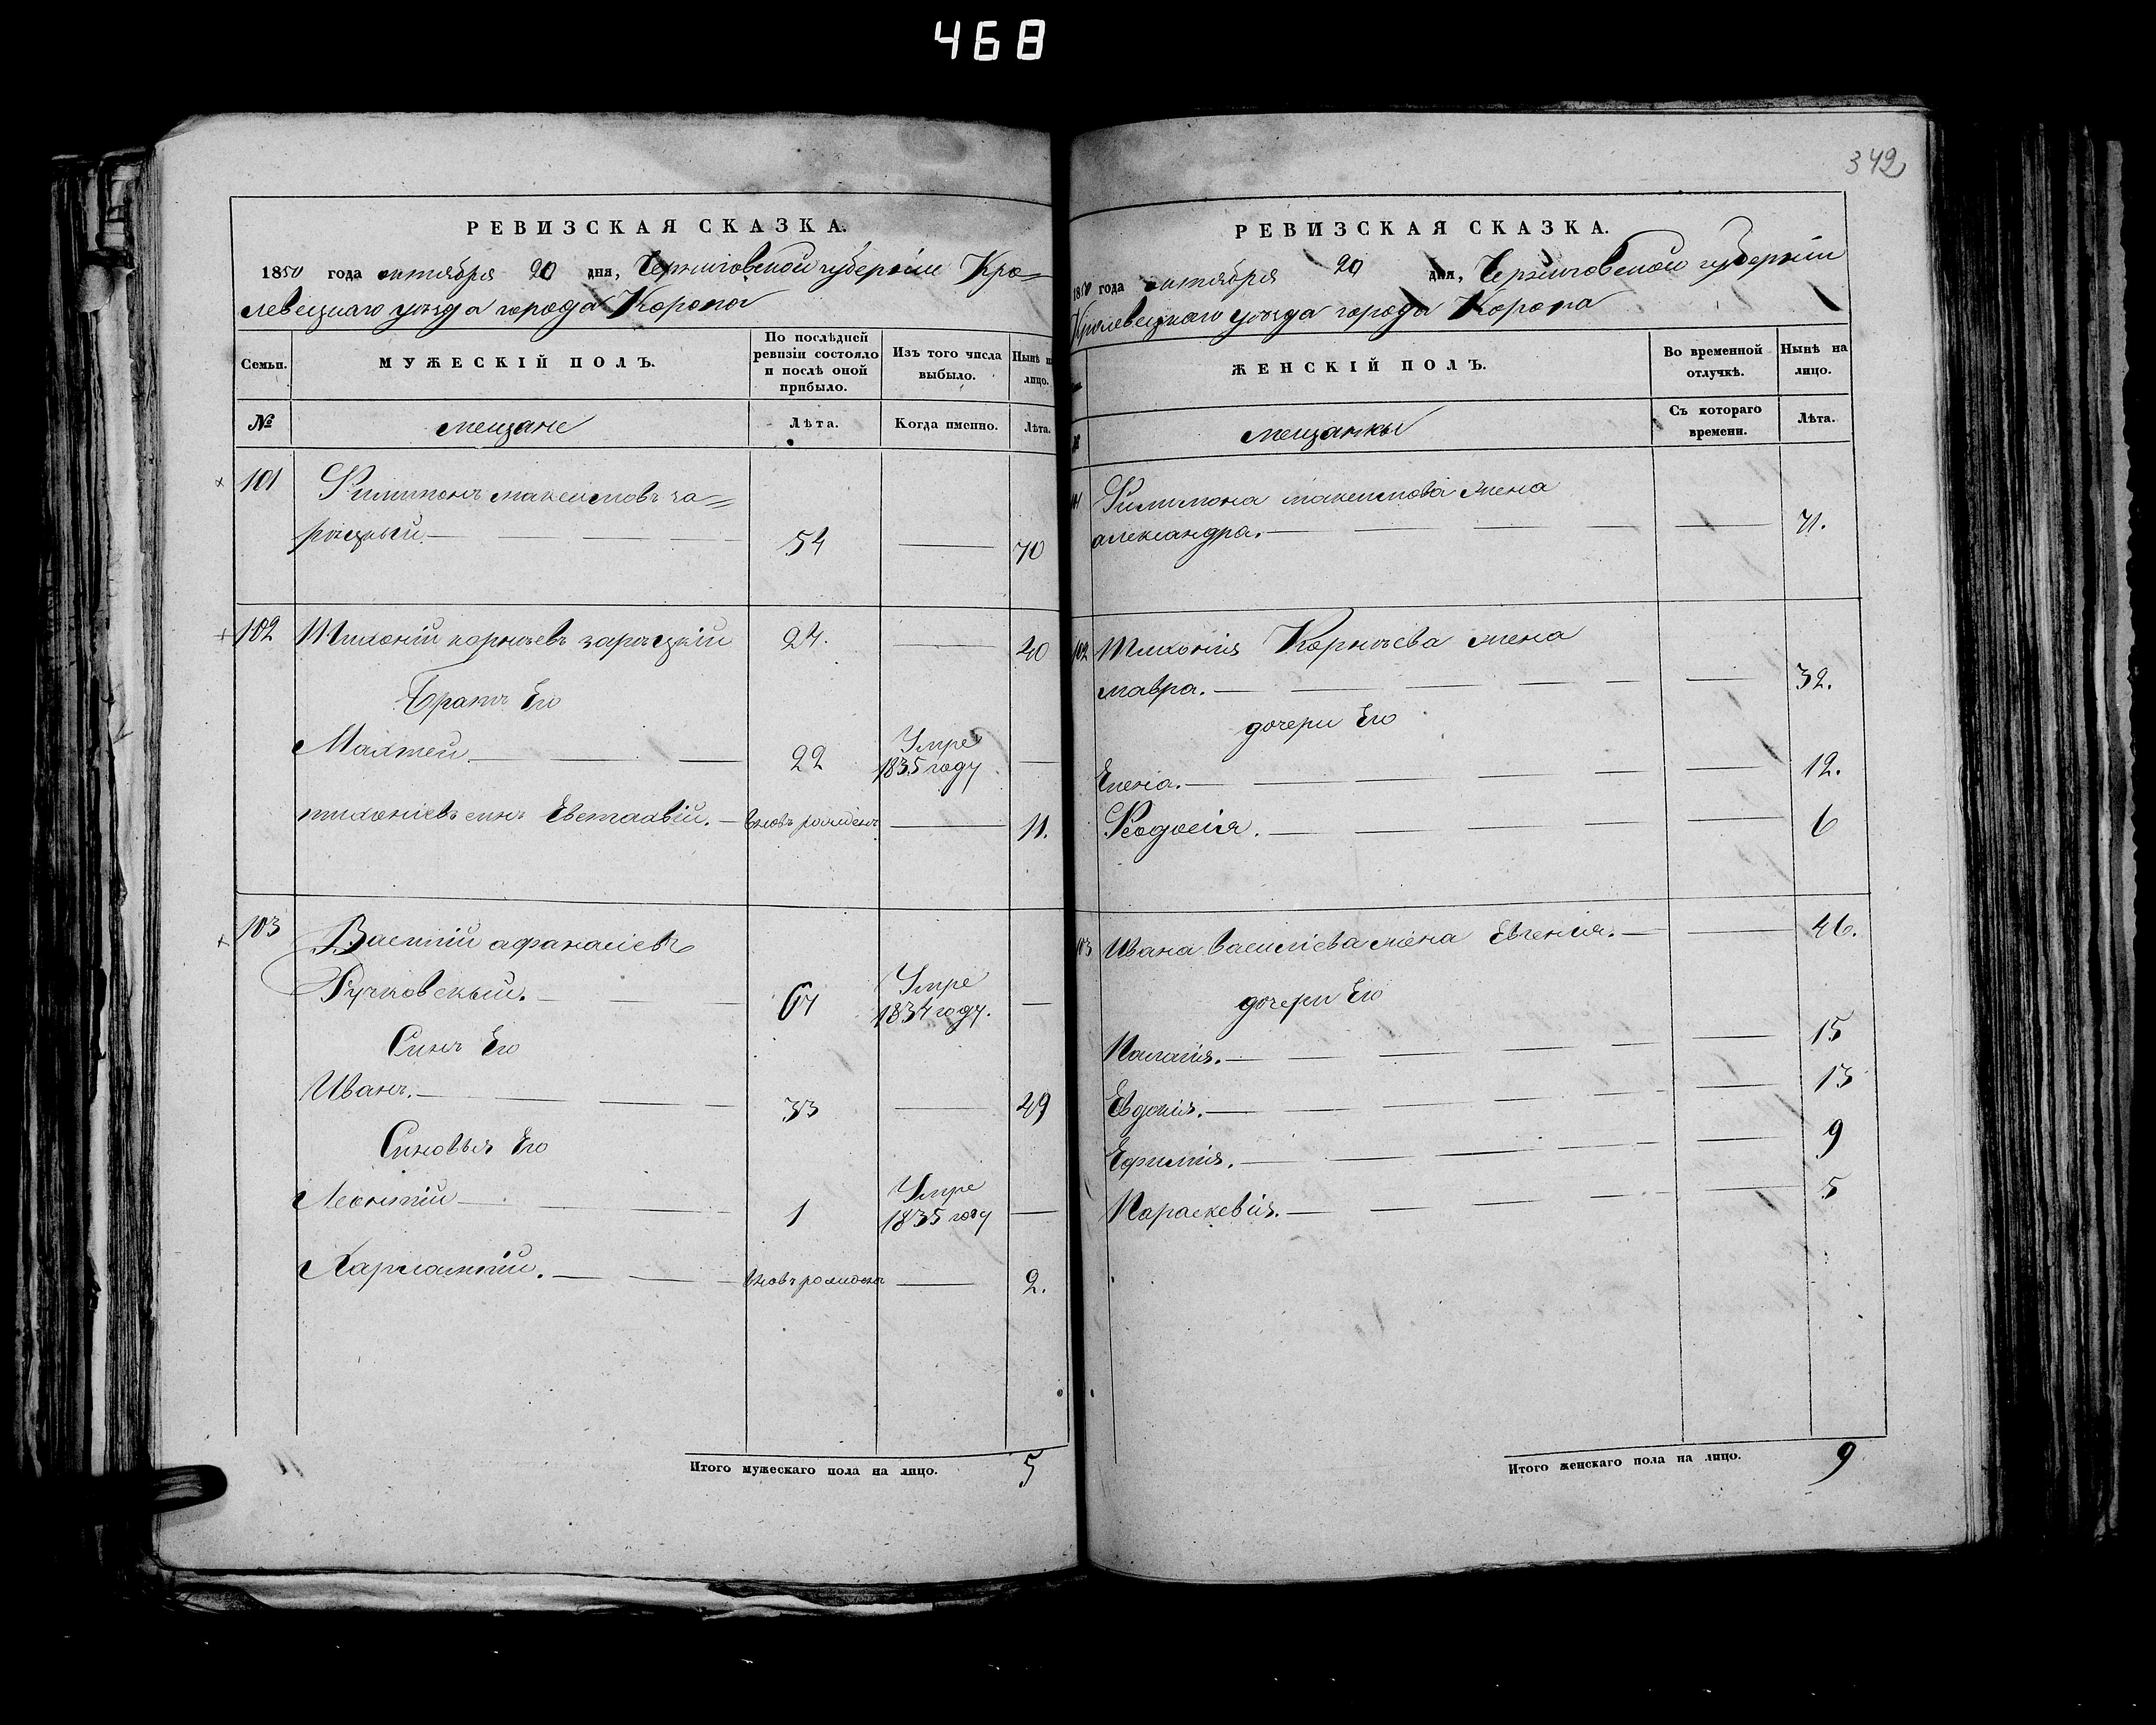 468
342
РЕВИЗСКАЯ СКАЗКА.
1850 года октября 20 дня, Черниговской губерніи Кро=
левецкаго уезда города Коропа
Семьи. МУЖЕСКІЙ ПОЛЪ. По послѣдней ревизіи состояло и послѣ оной прибыло. Изъ того числа выбыло. Нынѣ на лицо.
№ мещане Лѣта. Когда именно. Лѣта.
101 Филимонъ максимовъ за=
рецкый. 54 70
102 Тихоній корнѣевъ зарецкій 24. 40
Братъ Его
Махтей 22 Умре 1835 году
тихоніевъ синъ Евстахвій. вновь рожденъ 11.
103 Василій афанасіевъ
Ручковскый. 67 Умре 1834 году.
Синъ Его
Иванъ. 33 49
Синовья Его
Леонтій 1 Умре 1835 году
Харлампій. вновь рожденъ 2.
Итого мужескаго пола на лицо. 5
РЕВИЗСКАЯ СКАЗКА.
1850 года октября 20 дня, Черниговской губерніи
Кролевецкаго уезда города Коропа
ЖЕНСКІЙ ПОЛЪ. Во временной отлучкѣ. Нынѣ на лицо.
мещанкы Съ котораго времени. Лѣта.
Филимона максимова жена
александра. 71.
102 Тихонія Корнѣева жена
мавра. 32.
дочери Его
Елена. 12.
Феодосія. 6
103 Ивана василіева жена Евгенія. 46.
дочери Его
Палагія. 15
Евдокія. 13
Ефимія. 9
Параскевія. 5
Итого женскаго пола на лицо. 9